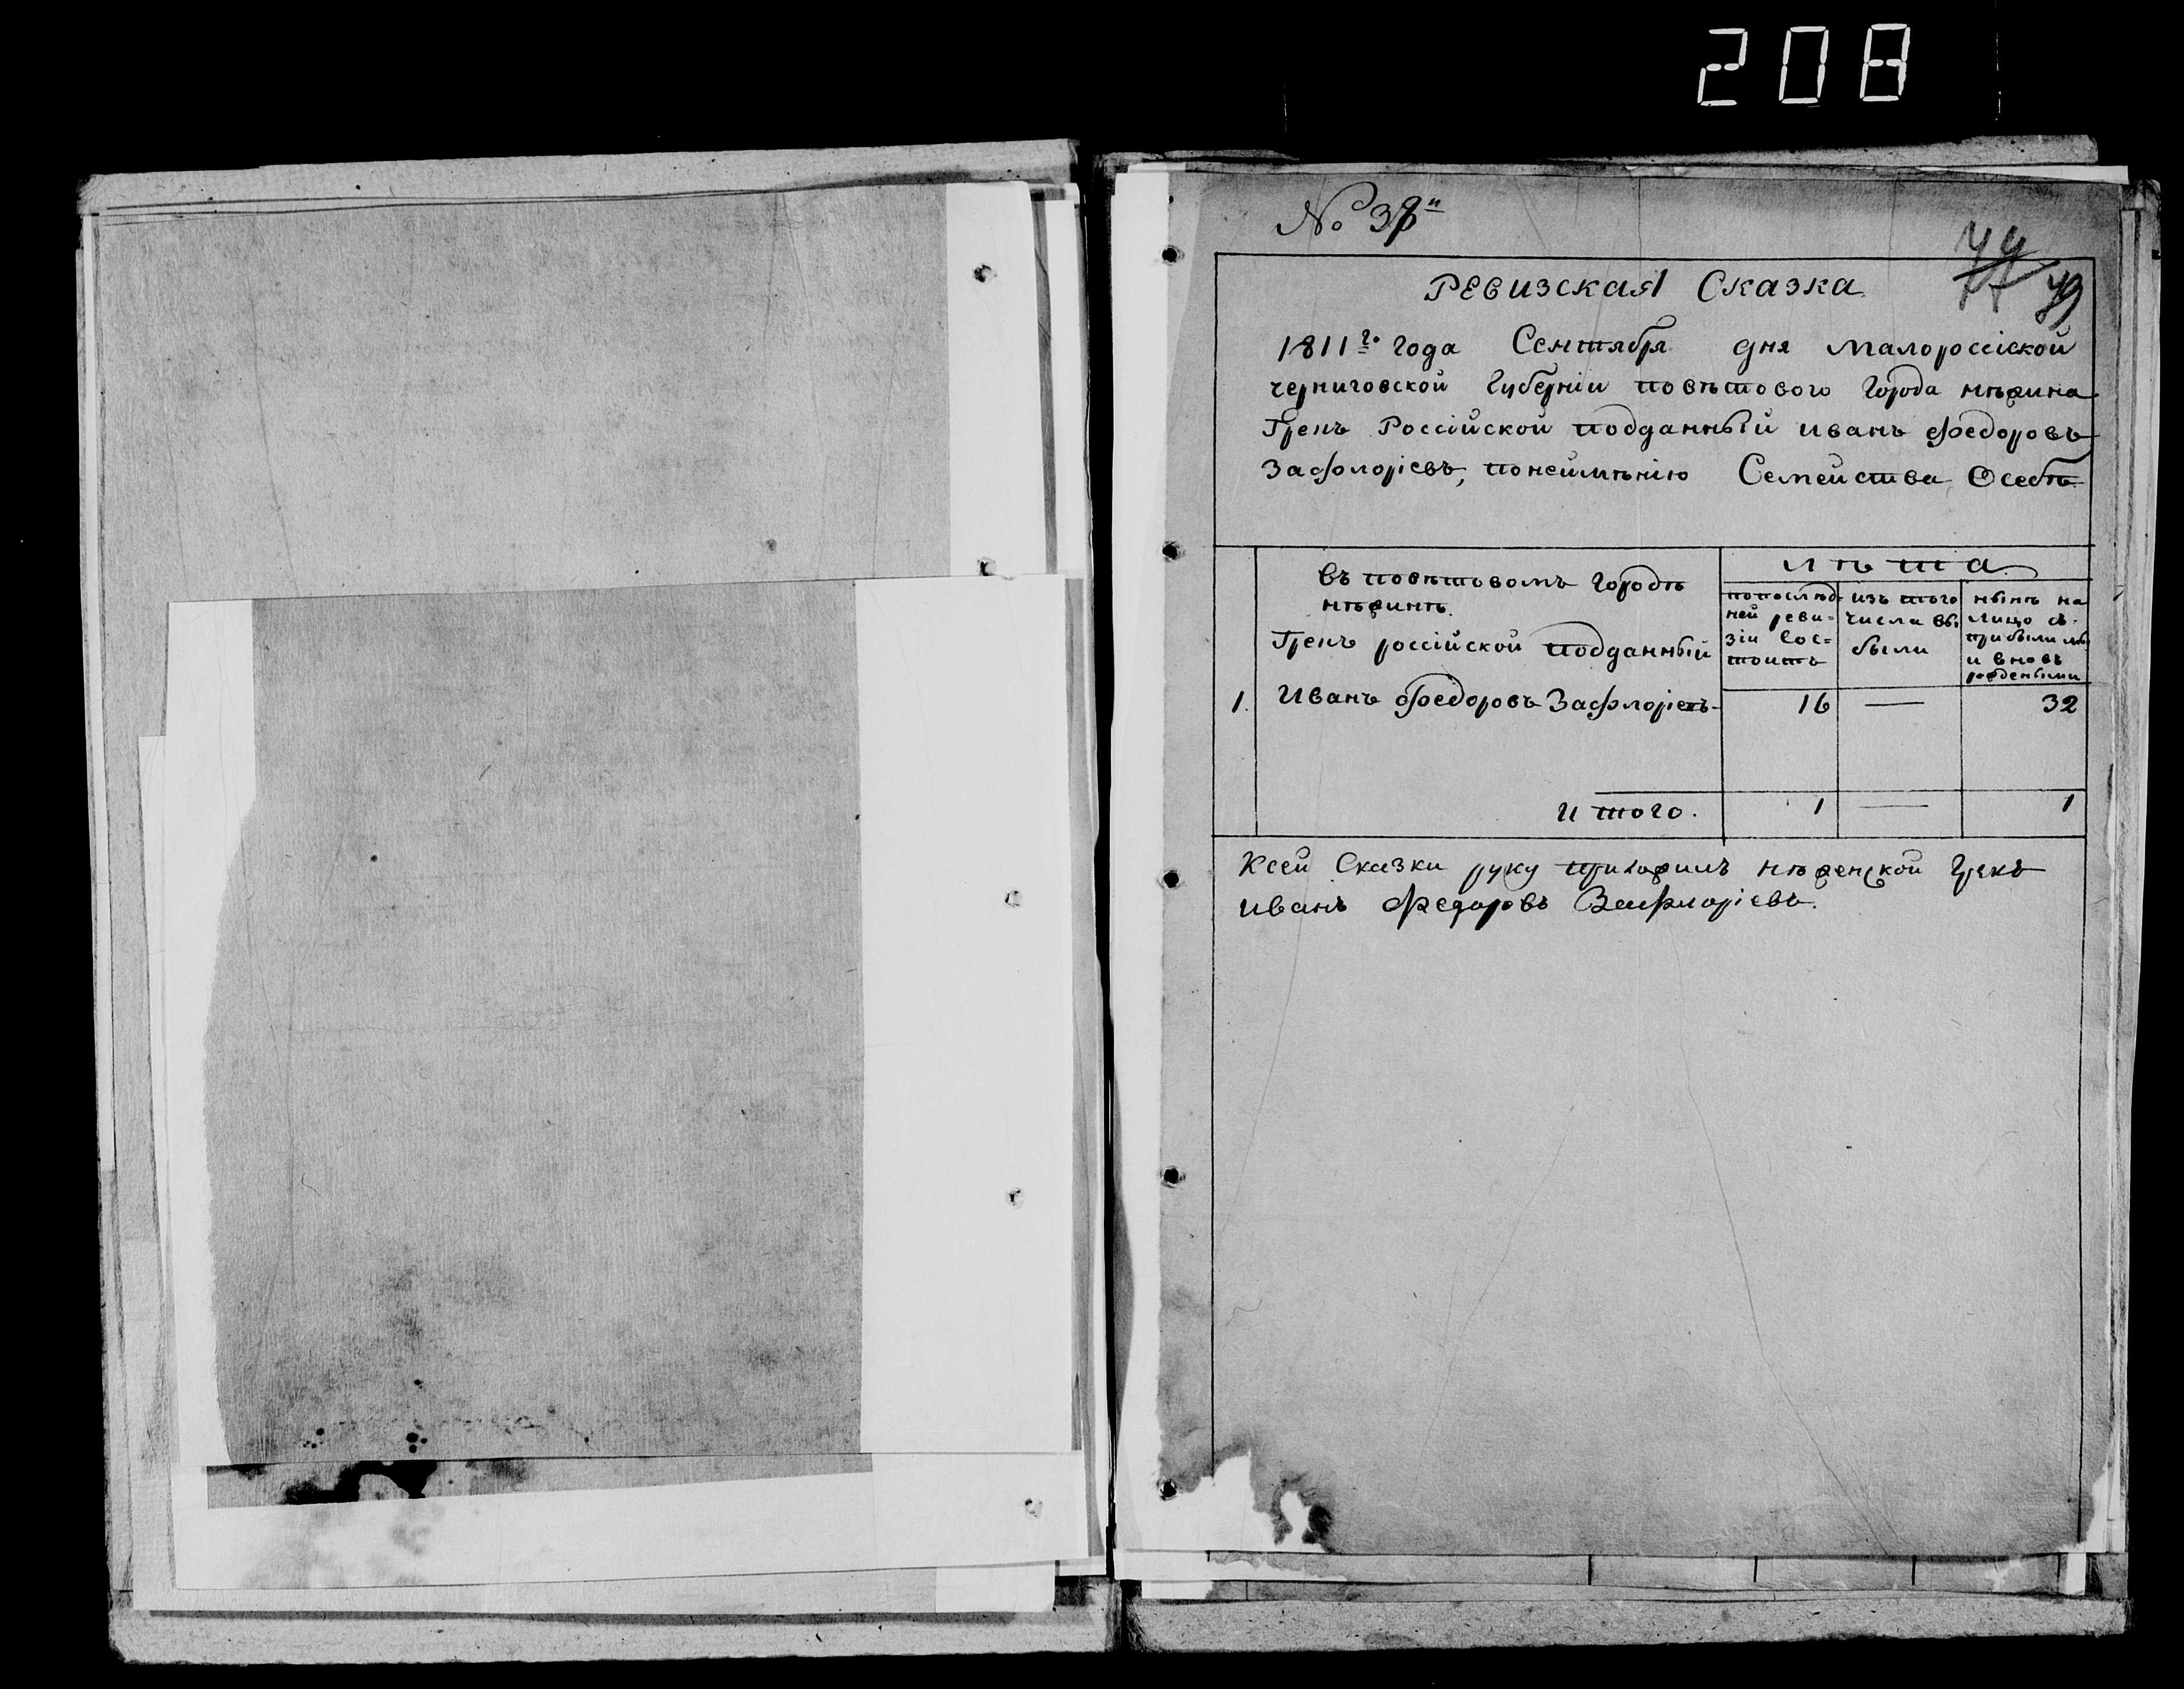 208
№ 38й
77 49
Ревизская Сказка
1811го года Сентября дня малороссійской
черниговской Губерніи повѣтового Города нѣжина
Грекъ Россійской подданный иванъ Федоровъ
Зафлоріевъ, понеимѣнію Семейства Особѣ
лѣта
въ повѣтовомъ Городѣ
нѣжинѣ.
Грекъ россійской подданный
попослѣд-
ней реви-
зіи сос-
тоитъ
изъ того
числа вы
были
нынѣ на
лицо съ
прибылыми
и вновь
рождеными
1. Иванъ Федоровъ Зафлоріевъ 16 — 32
Итого. 1 — 1
Ксей Сказки руку приложилъ нѣженской Грекъ
иванъ Федоровъ Зафлоріевъ.